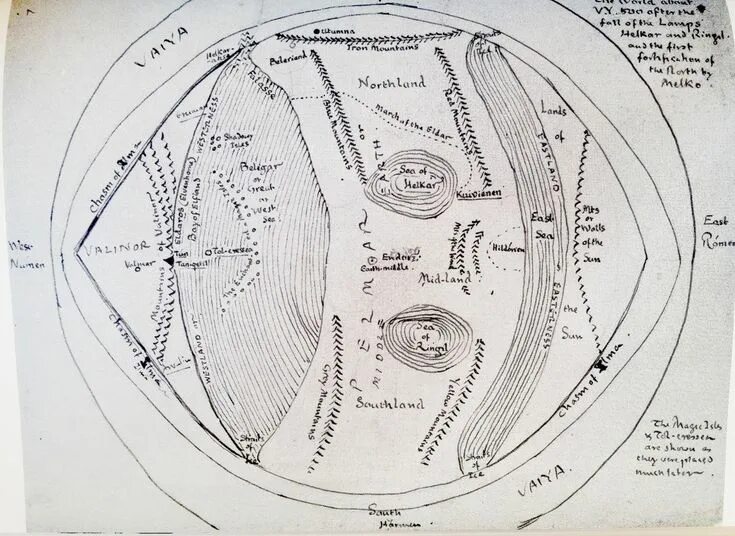 the World about
V.Y. 500 after the
fall of the Lamps
Helkar and Ringil
and the first
fortification of
the North by
Melko.
VAIYA
Helkar-
Straits
of
Ice
Utumna
Iron Mountains
Beleriand
Northland
Blue Mountains
Red Mountains
March of the Eldar
Lands
of
EASTLAND
WESTERNESS
Shadowy
Isles
Belegar
or
Great
West
Sea
Eldaros (Elvenhome)
Bay of Elfland
Chasm of Ilma
Sea of
Helkar
Kuiviénen
West-
Numen
VALINOR
Valmar
Mountains of Valinor
Tun
Taniquetil
Tol-eressea
The Enchanted
PELMAR
or
MIDDLE
EARTH
Endor
Earth-middle
Mid-land
Hildorien
East-
Sea
Mts
or
Walls
of the
Sun
the
Sun
East
Romen
WESTLAND or
EASTERNESS
Sea
of
Ringil
Chasm of Ilma
Grey Mountains
Southland
Yellow Mountains
Chasm of Ilma
Straits
of
Ice
Straits
of
Ice
VAIYA.
The Magic Isles
& Tol-eressea
are shown as
they were placed
much later.
South
Harmen